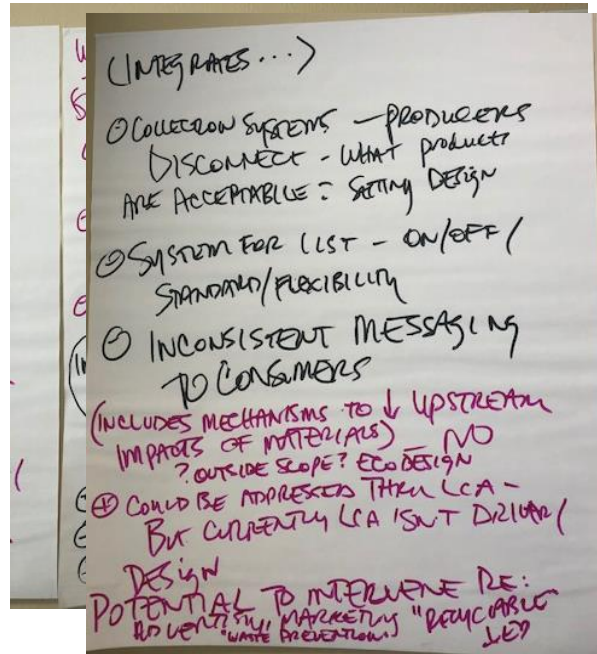 (INTEGRATES...)
⊖ COLLECTION SYSTEMS – PRODUCERS
DISCONNECT - WHAT products
ARE ACCEPTABLE = SETTING DESIGN
⊖ SYSTEM FOR LIST - ON/OFF /
STANDARD/FLEXIBILITY
⊖ INCONSISTENT MESSAGING
TO CONSUMERS
(INCLUDES MECHANISMS TO ↓ UPSTREAM
IMPACTS OF MATERIALS) – NO
? OUTSIDE SCOPE? ECODESIGN
⊕ COULD BE ADDRESSED THRU LCA -
BUT CURRENTLY LCA ISN'T DRIVER /
DESIGN
POTENTIAL TO INTERVENE RE:
ADVERTISING, MARKETING "RECYCLABLE"
"WASTE PREVENTION"